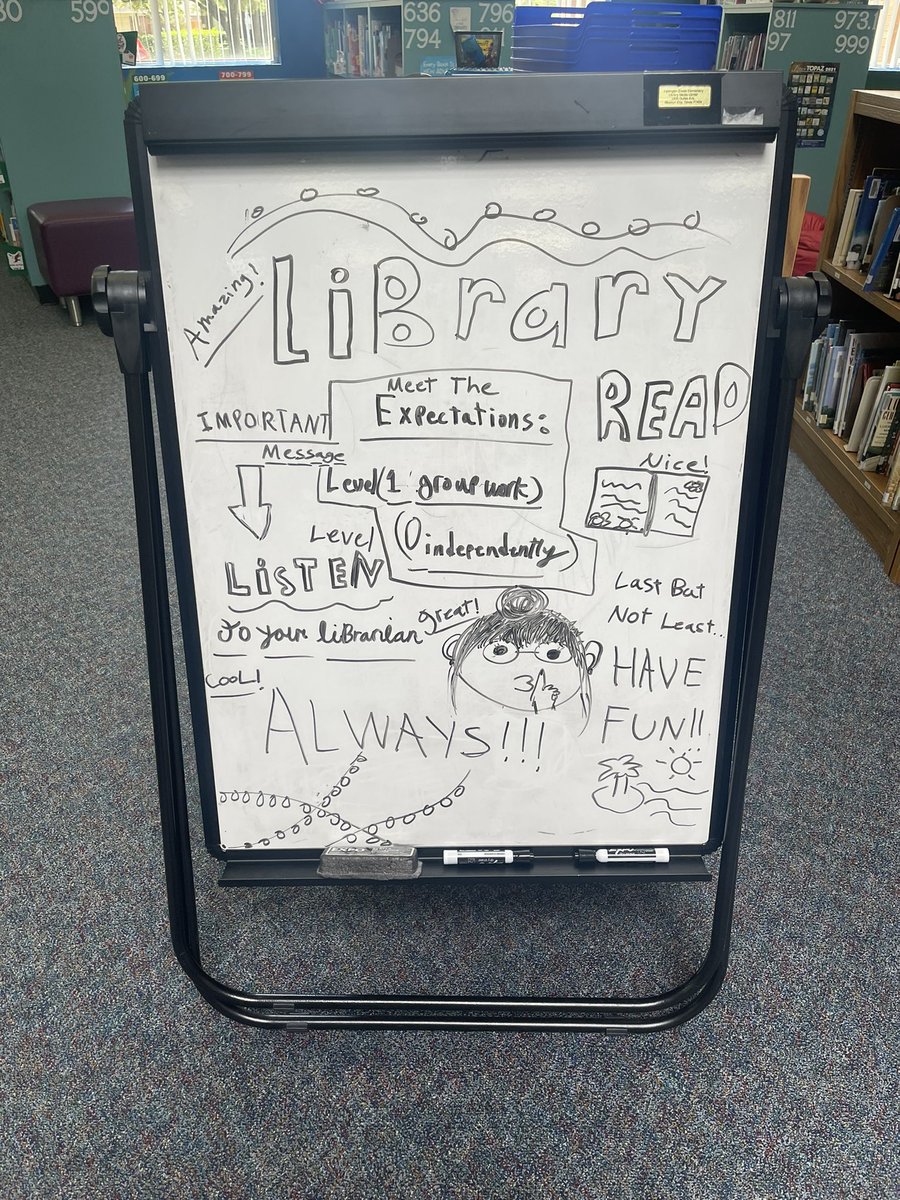 80
590
636
796
794
811
973.1
97
999
600-699
700-799
TOPAZ
Amazing!
LiBrary
IMPORTANT
Message
Meet The
Expectations:
Level(1 group work)
Level (0 independently)
READ
Nice!
LiSTEN
To your liBrarian
great!
COOL!
ALWAYS!!!
Last But
Not Least..
HAVE
FUN!!